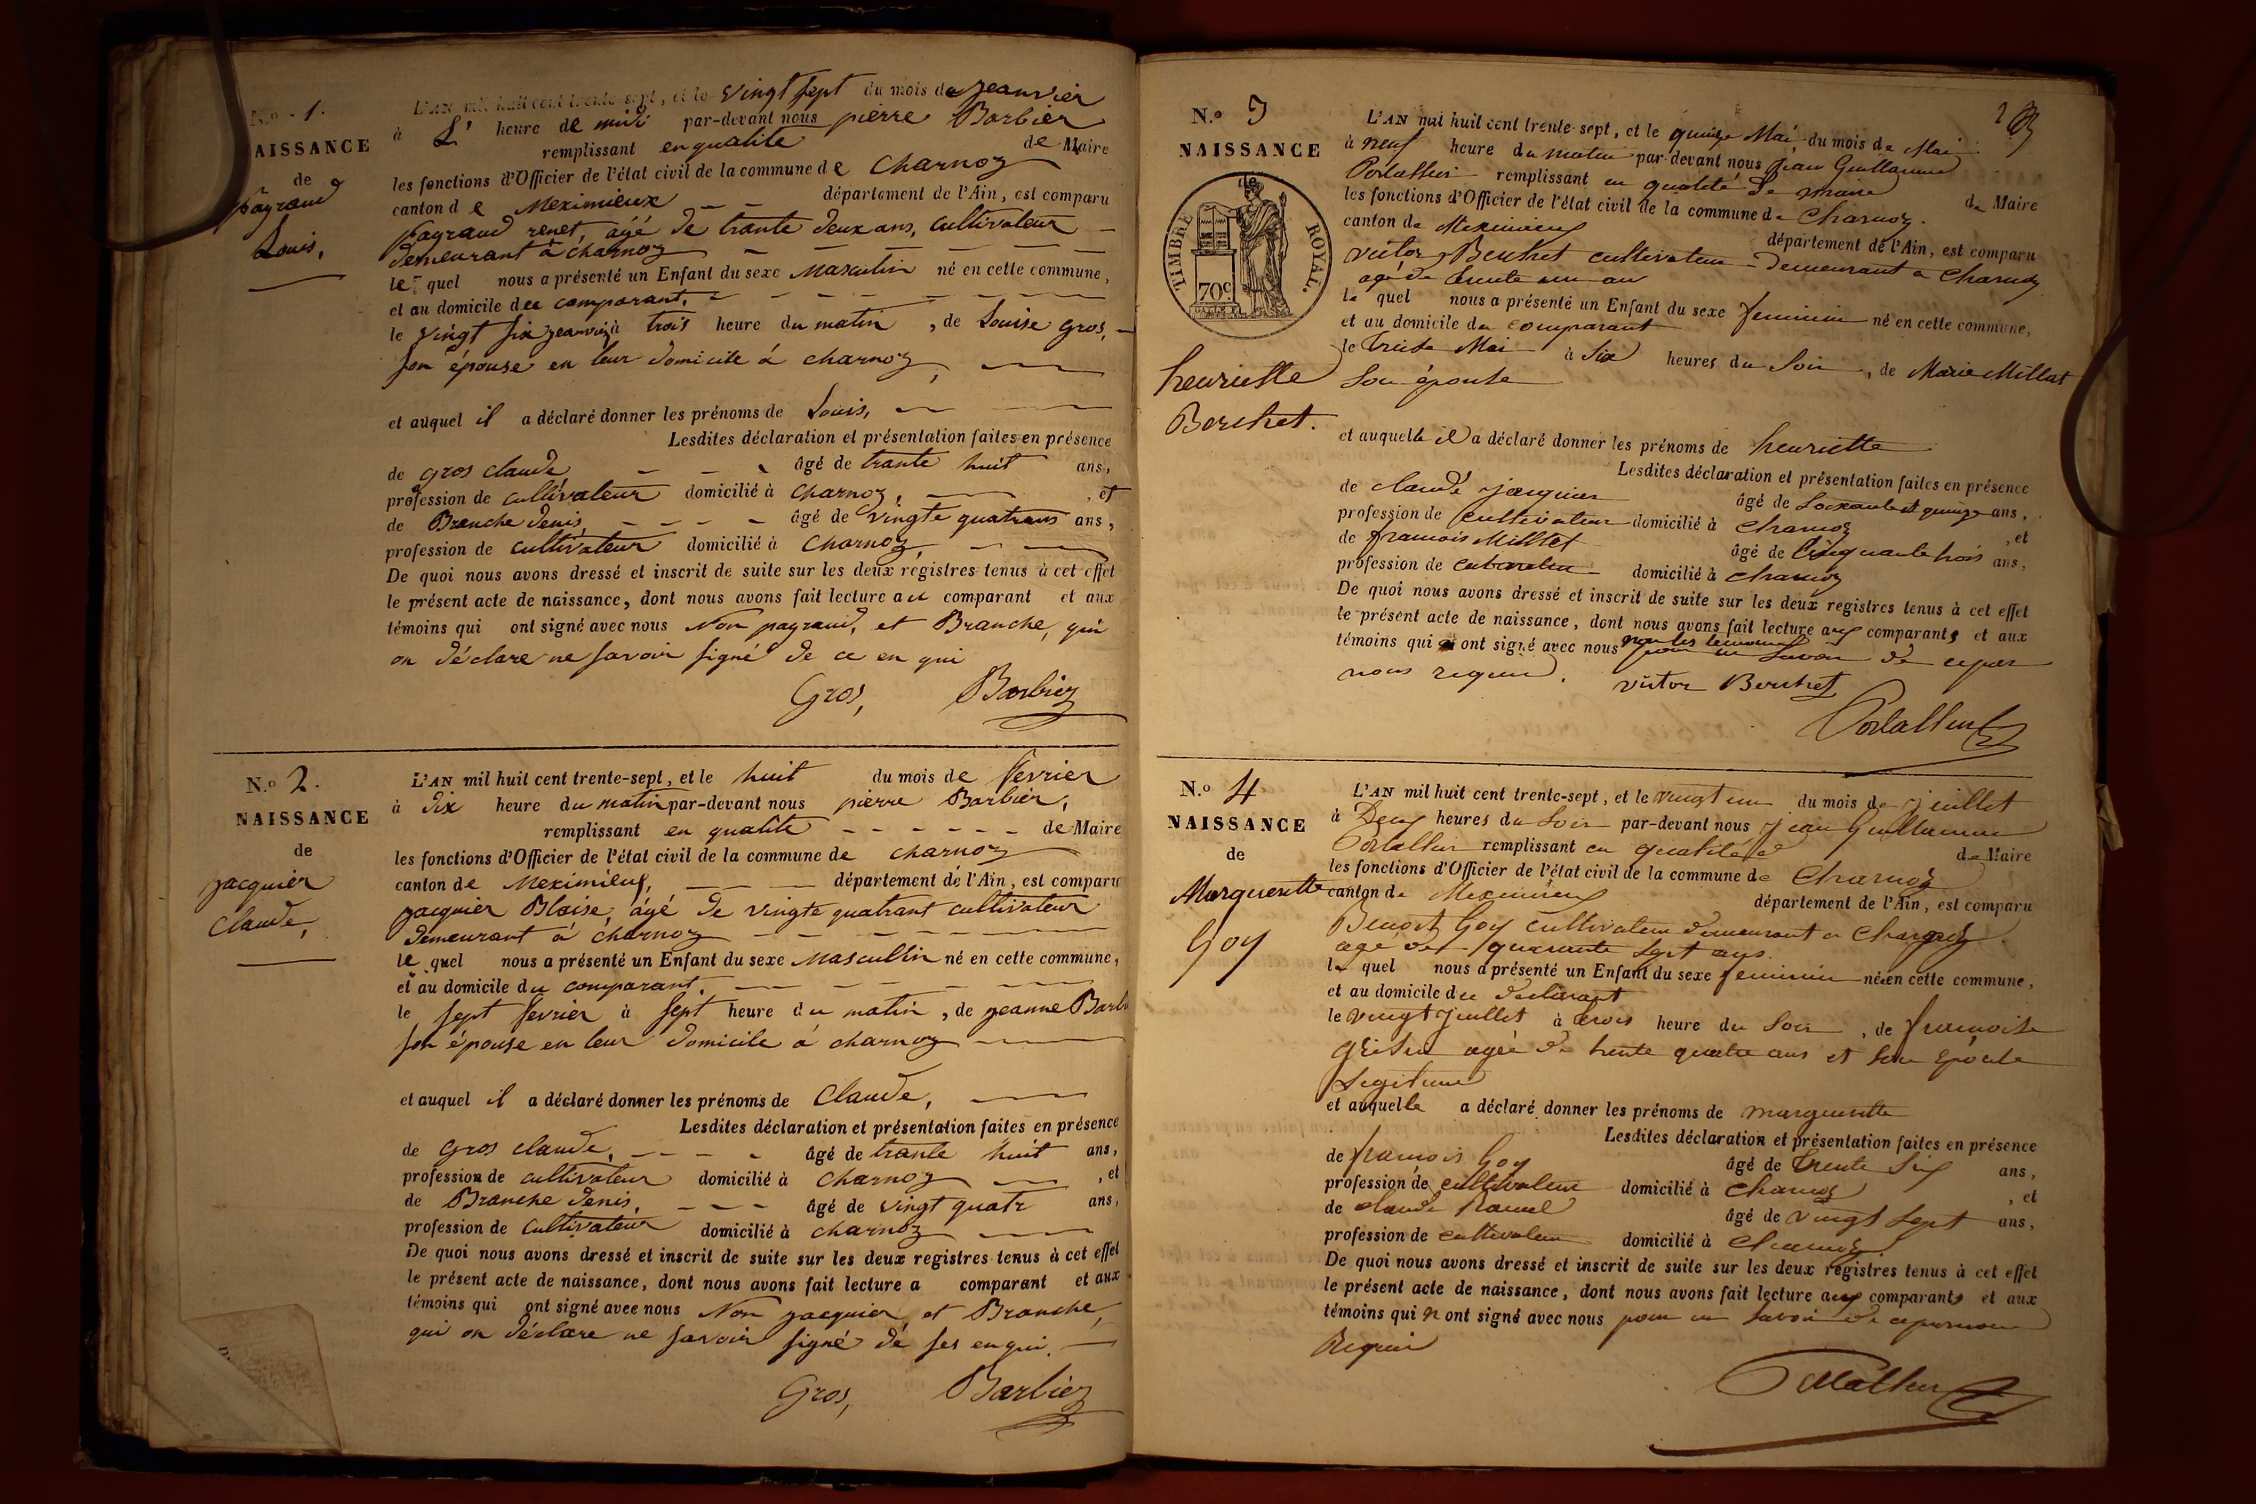 N.º 1.
NAISSANCE
de
payraud
Louis,
L'AN mil huit cent trente-sept, et le vingt sept du mois de jeanvier
à L' heure de midi par-devant nous pierre Barbier
remplissant en qualité de Maire
les fonctions d'Officier de l'état civil de la commune de Charnoz
canton de Meximieux département de l'Ain, est comparu
payraud renet, âgé de trante deux ans, cultivateur
demeurant à charnoz
le quel nous a présenté un Enfant du sexe Masculin né en cette commune,
et au domicile du comparant.
le vingt six jeanvier à trois heure du matin, de Louise gros,
son épouse en leur domicile á charnoz,
et auquel il a déclaré donner les prénoms de Louis,
Lesdites déclaration et présentation faites en présence
de gros claude âgé de trante huit ans,
profession de cultivateur domicilié à charnoz, et
de Branche denis, âgé de vingte quatrans ans,
profession de cultivateur domicilié à charnoz,
De quoi nous avons dressé et inscrit de suite sur les deux régistres tenus à cet effet
le présent acte de naissance, dont nous avons fait lecture au comparant et aux
témoins qui ont signé avec nous Non payraud, et Branche, qui
on déclare ne savoir signé de ce en qui
Gros, Barbier
N.º 2.
NAISSANCE
de
jacquier
Claude,
L'AN mil huit cent trente-sept, et le huit du mois de fevrier
à dix heure du matin par-devant nous pierre Barbier,
remplissant en qualité de Maire
les fonctions d'Officier de l'état civil de la commune de charnoz
canton de Meximieux, département de l'Ain, est comparu
jacquier Blaise, âgé de vingte quatrant cultivateur
demeurant á charnoz
le quel nous a présenté un Enfant du sexe Masculin né en cette commune,
et au domicile du comparant.
le sept fevrier à sept heure du matin, de jeanne Barb
son épouse en leur domicile á charnoz
et auquel il a déclaré donner les prénoms de Claude,
Lesdites déclaration et présentation faites en présence
de gros claude, âgé de trante huit ans,
profession de cultivateur domicilié à charnoz, et
de Branche denis, âgé de vingt quatr ans,
profession de cultivateur domicilié à charnoz
De quoi nous avons dressé et inscrit de suite sur les deux registres tenus à cet effet
le présent acte de naissance, dont nous avons fait lecture a comparant et aux
témoins qui ont signé avec nous Non jacquier, et Branche,
qui on déclare ne savoir signé de ses en qui.
Gros, Barbier
N.º 3
NAISSANCE
de
TIMBRE ROYAL.
70c
henriette
Berthet.
L'AN mil huit cent trente-sept, et le quinze Mai, du mois de Mai
à neuf heure du matin par-devant nous jean Guillaume
Portallier remplissant en qualité de maire de Maire
les fonctions d'Officier de l'état civil de la commune de Charnoz.
canton de Meximieux département de l'Ain, est comparu
victor Berthet cultivateur demeurant a Charnoz
agé de trente un an
le quel nous a présenté un Enfant du sexe feminin né en cette commune,
et au domicile du comparant
le treise Mai à Six heures du Soir, de Marie Millet
Son épouse
et auquelle il a déclaré donner les prénoms de henriette
Lesdites déclaration et présentation faites en présence
de claude jacquier âgé de Soixante et quinze ans,
profession de cultivateur domicilié à Charnoz, et
de francois Millet âgé de Cinquante trois ans,
profession de domicilié à Charnoz
De quoi nous avons dressé et inscrit de suite sur les deux régistres tenus à cet effet
le présent acte de naissance, dont nous avons fait lecture aux comparants et aux
témoins qui ont signé avec nous non les temoins pour ne Savoir de ce par
nous requis. victor Berthet
Portallier
N.º 4
NAISSANCE
de
Margueritte
Goy
L'AN mil huit cent trente-sept, et le vingt un du mois de juillet
à Deux heures du Soir par-devant nous jean Guillaume
Portallier remplissant en qualité de Maire
les fonctions d'Officier de l'état civil de la commune de Charnoz
canton de Meximieux département de l'Ain, est comparu
Benoit Goy cultivateur demeurant a Charnoz
age de quarante Sept ans.
le quel nous a présenté un Enfant du sexe feminin née en cette commune,
et au domicile du declarant
le vingt juillet à trois heure du Soir, de francoise
agée de trente quatre ans et Son Epouse
Legitime
et auquelle a déclaré donner les prénoms de margueritte
Lesdites déclaration et présentation faites en présence
de francois Goy âgé de trente Six ans,
profession de cultivateur domicilié à Charnoz, et
de claude âgé de vingt Sept ans,
profession de cultivateur domicilié à Charnoz
De quoi nous avons dressé et inscrit de suite sur les deux régistres tenus à cet effet
le présent acte de naissance, dont nous avons fait lecture aux comparants et aux
témoins qui n ont signé avec nous pour ne Savoir de ce par nous
Requis
Portallier